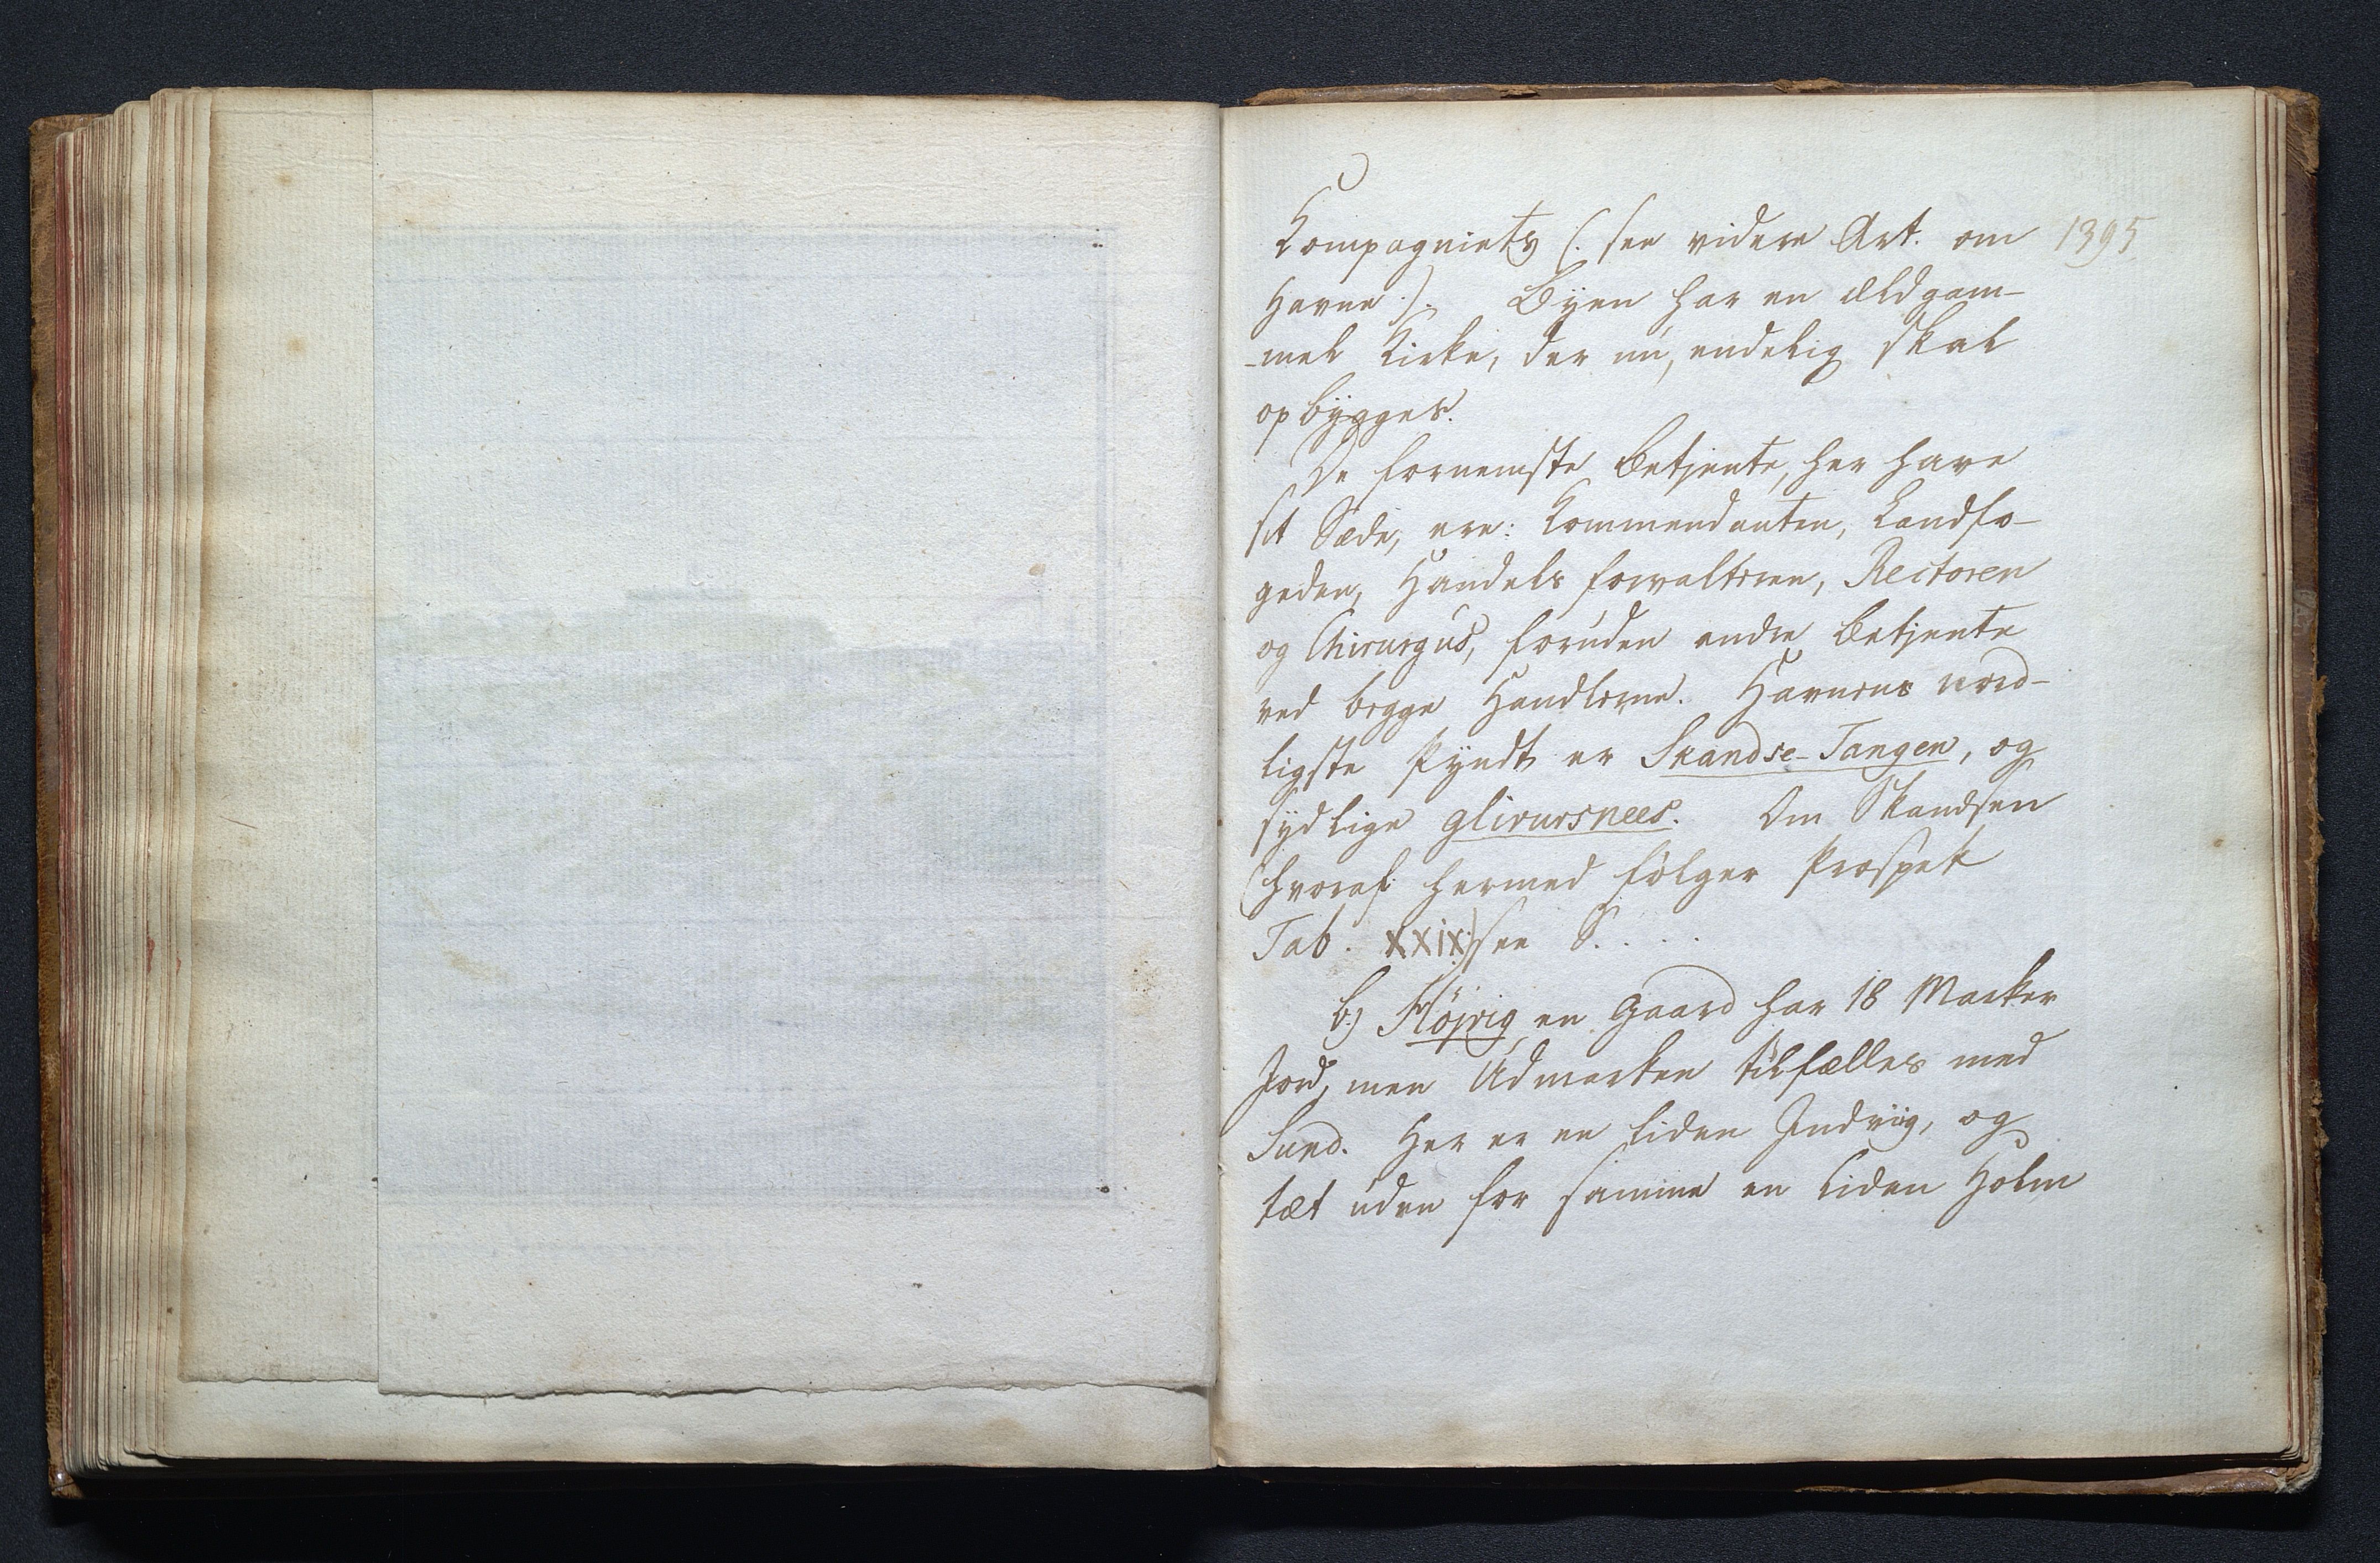 Kompagniets (: see videre Art. om 1395
Havne :). Byen har en ældgam-
-mel Kirke, der nu, endelig skal
opbygges.
De fornemste Betjente, her have
sit Sæde, ere: Kommendanten, Landfo-
geden, Handels forvalteren, Rectoren
og Chirurgus, foruden andre Betjente
ved begge Handlerne. Havnens nord-
ligste Pyndt er Skandse-Tangen, og
sydlige glivursnees. Om Skandsen
(hvoraf hermed følger Prospekt
Tab. XXIX:) see S. . . .
b.) Höjvig, en Gaard har 18 Marker
Jord, men Udmarken tilfælles med
Sund. Her er en liden Indviig, og
tæt uden for samme en liden Holm